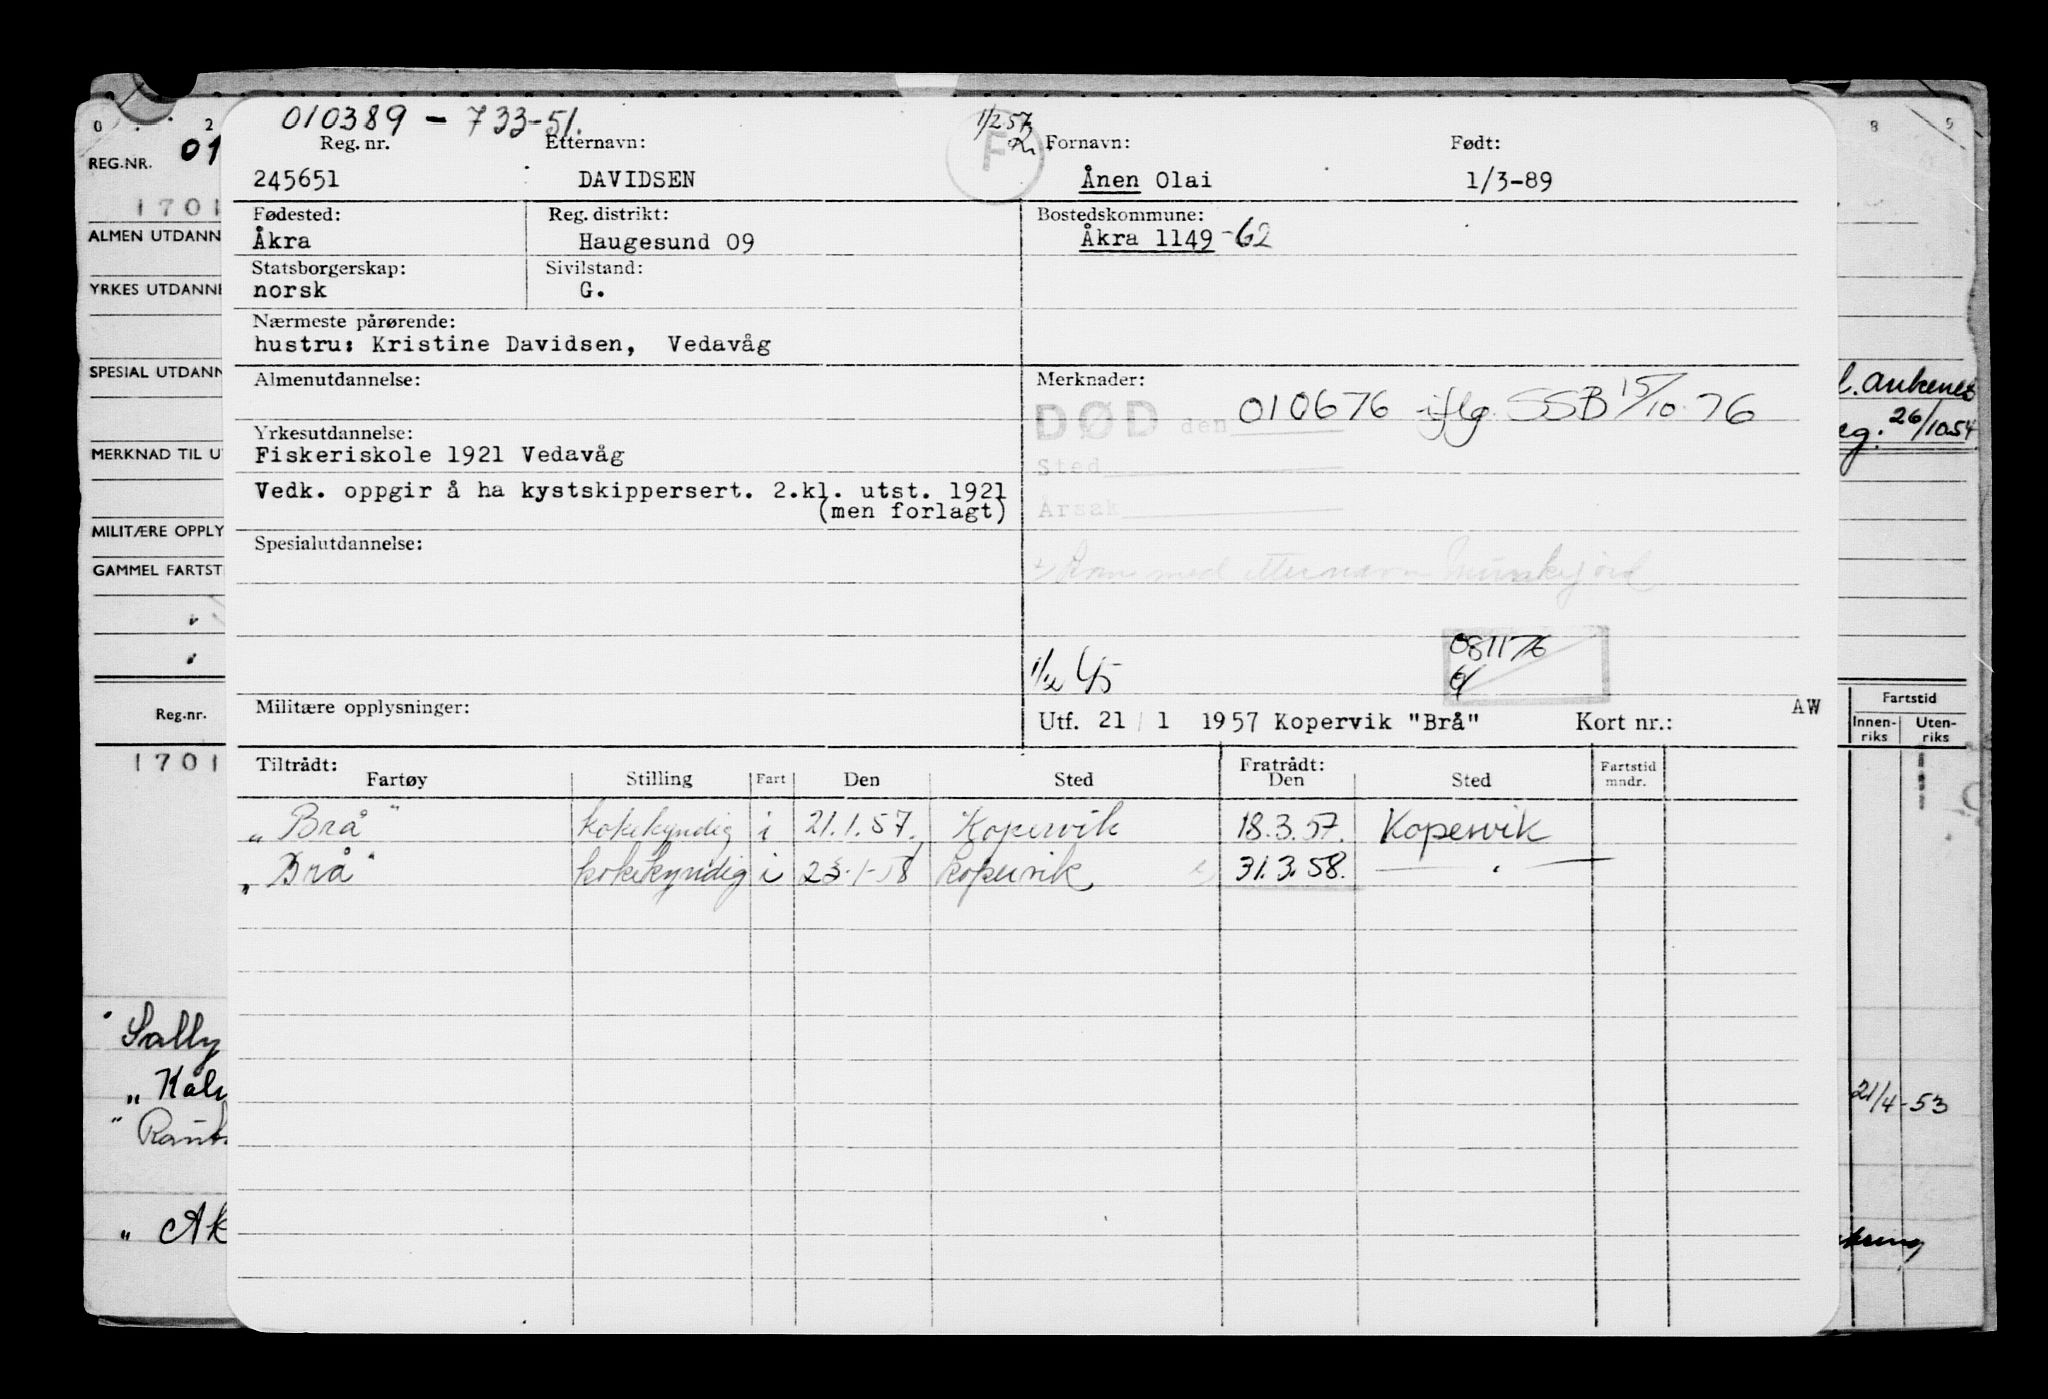 010389 - 733-51.
1/2 57
F
Reg. nr. Etternavn: Fornavn: Født:
245651 DAVIDSEN Ånen Olai 1/3-89
Fødested: Reg. distrikt: Bostedskommune:
Åkra Haugesund 09 Åkra 1149-62
Statsborgerskap: Sivilstand:
norsk G.
Nærmeste pårørende:
hustru: Kristine Davidsen, Vedavåg
Almenutdannelse: Merknader:
DØD den 010676 iflg. SSB 15/10-76
Yrkesutdannelse:
Fiskeriskole 1921 Vedavåg
Sted
Vedk. oppgir å ha kystskippersert. 2.kl. utst. 1921
(men forlagt)
Årsak
Spesialutdannelse:
med etternavn
081176
Militære opplysninger:
Utf. 21 / 1 1957 Kopervik "Brå" Kort nr.: AW
Tiltrådt: Fratrådt:
Fartøy Stilling Fart Den Sted Den Sted Fartstid mndr.
"Brå" kokekyndig i 21.1.57. Kopervik 18.3.57. Kopervik
"Brå" kokekyndig i 23.1-58 Kopervik 31.3.58. — " —
0 2
REG.NR. 01
1701
ALMEN UTDANN
YRKES UTDANNE
SPESIAL UTDANN
MERKNAD TIL U
MILITÆRE OPPLY
GAMMEL FARTST
Reg.nr.
1701
Sally
" Kal
" Ak
8 9
26/10.54
Fartstid
Innen-riks Uten-riks
21/4-53